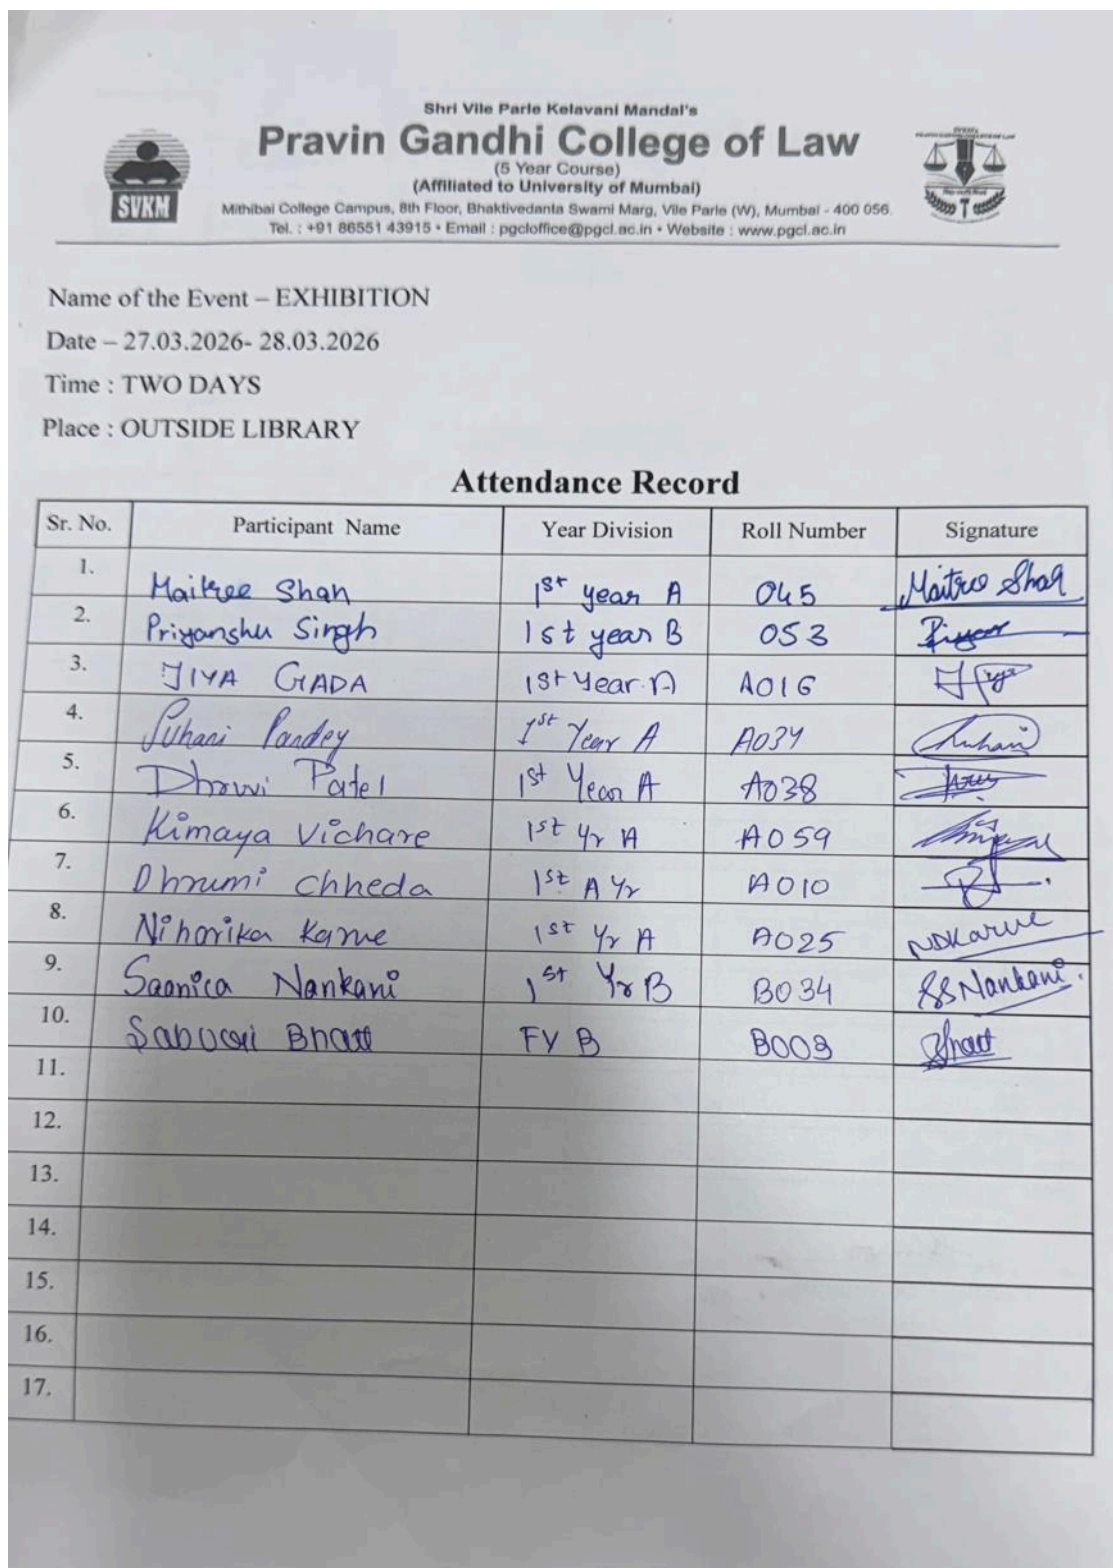 Shri Vile Parle Kelavani Mandal's
Pravin Gandhi College of Law
(5 Year Course)
(Affiliated to University of Mumbai)
Mithibai College Campus, 8th Floor, Bhaktivedanta Swami Marg, Vile Parle (W), Mumbai - 400 056.
Tel. : +91 86551 43915 • Email : pgcloffice@pgcl.ac.in • Website : www.pgcl.ac.in
SVKM
Name of the Event – EXHIBITION
Date – 27.03.2026- 28.03.2026
Time : TWO DAYS
Place : OUTSIDE LIBRARY
Attendance Record
Sr. No. Participant Name Year Division Roll Number Signature
1. Maitree Shah 1st year A 045 Maitree Shah
2. Priyanshu Singh 1st year B 053
3. JIYA GADA 1st Year A A016
4. Suhani Pandey 1st Year A A034 Suhani
5. Dhruvi Patel 1st Year A A038
6. Kimaya Vichare 1st Yr A A059
7. Dhrumi Chheda 1st A Yr A010
8. Niharika Karve 1st Yr A A025 NDKarve
9. Saanica Nankani 1st Yr B B034 SSNankani.
10. Bhatt FY B B009 Bhatt
11.
12.
13.
14.
15.
16.
17.